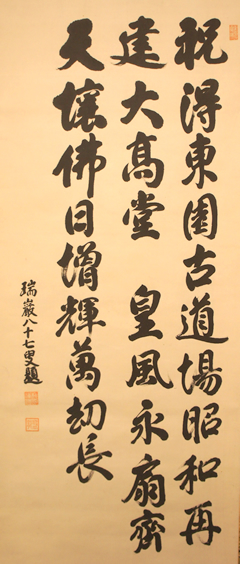 祝得東国古道場昭和再
建大高堂 皇風永扇齊
天壌佛日増輝萬劫長
瑞巌八十七叟題